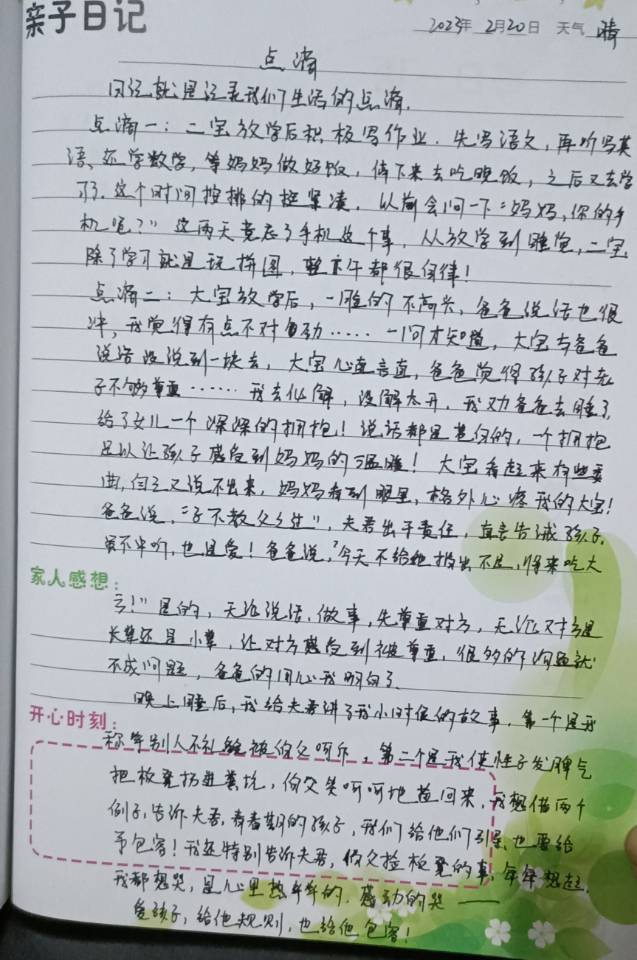 亲子日记
2023年 2月20日 天气 晴
点滴
日记就是记录我们生活的点滴.
点滴一：二宝放学后积极写作业. 先写语文, 再听写英
语, 还学数学, 等妈妈做好饭, 停下来去吃晚饭, 之后又去学
习. 这个时间按排的挺紧凑. 以前会问一下: "妈妈, 你的手
机呢?" 这两天竟忘了手机这个事, 从放学到睡觉, 二宝
除了学习就是玩拼图, 整下午都很自律!
点滴二：大宝放学后, 一脸的不高兴, 爸爸说话也很
冲, 我觉得有点不对劲…… 一问才知道, 大宝与爸爸
说话没说到一块去, 大宝心直言直, 爸爸觉得孩子对老
子不够尊重…… 我去化解, 没解太开, 我劝爸爸去睡了,
给了女儿一个深深的拥抱! 说话都是苍白的, 一个拥抱
足以让孩子感受到妈妈的温暖! 大宝看起来有些委
曲, 自己又说不出来, 妈妈看到眼里, 格外心疼我的大宝!
爸爸说, "子不教父之过", 夫君出于责任, 直言告诫孩子.
虽不中听, 也是爱! 爸爸说, "今天不给她指出不足, 将来吃大
家人感想：
亏!" 是的, 无论说话, 做事, 先尊重对方, 无论对方是
长辈还是小辈, 让对方感受到被尊重, 很多的问题就
不成问题, 爸爸的用心我明白了.
晚上睡后, 我给夫君讲了我小时侯的故事, 第一个是我
开心时刻：
称呼别人不礼貌被伯父呵斥, 第二个是我使性子发脾气
把板凳扔进粪坑, 伯父笑呵呵地捡回来, 我想借两个
例子, 告诉夫君, 青春期的孩子, 我们给他们引导, 也要给
予包容! 我还特别告诉夫君, 伯父捡板凳的事, 年年想起,
我都想哭, 是心里热乎乎的, 感动的哭 ——
爱孩子, 给他规则, 也给他包容!